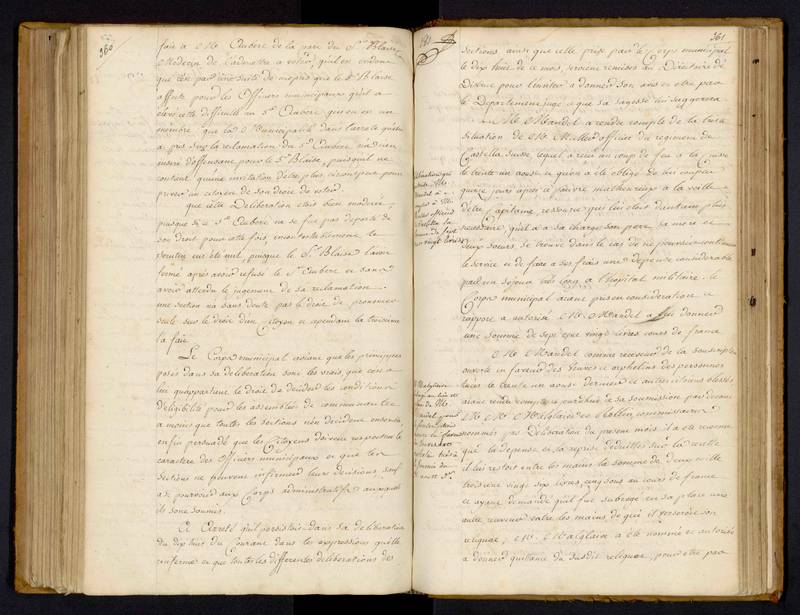 360
faite à Mr. Aubere de la part du Sr. Blaise
Medecin de l'admettre à voter, quil en ordonne
que c'est par une suite de mepris que le Sr. Blaise
affecte pour les Officiers municipaux quil a
elevé cette difficulté au Sr. Aubere qui en est un
membre que la Municipalité dans l'arreté quelle
a pris sur la reclamation du Sr. Aubere n'a rien
inseré d'offensant pour le Sr. Blaise, puisquil ne
contient qu'une invitation d'etre plus circonspect pour
priver un citoien de son droit de voter.
que cette Deliberation etoit bien moderée,
puisque si le Sr. Aubere ne se fut pas deporté de
son droit pour cette fois, incontestablement le
scrutin eut eté nul, puisque le Sr. Blaise l'avoit
fermé après avoir refusé le Sr. Aubere et sans
avoir attendu le jugement de sa reclamation.
une section n'a sans doute pas le droit de prononcer
seule sur le droit d'un Citoyen et cependant la troisieme
l'a fait
Le Corps municipal croiant que les principes
posés dans sa deliberation sont les vrais, que cest à
lui qu'appartient le droit de decider les conditions
d'eligibilité pour les assemblées de communauté
a moins que toutes les sections n'en decident ensemble,
enfin persuadé que les Citoyens doivent respecter le
caractere des Officiers municipaux et que les
Sections ne peuvent infirmer leurs decisions, sauf
a se pourvoir aux Corps administratifs auxquels
ils sont soumis.
A Arreté quil persistoit dans sa deliberation
du dix huit du Courant dans les expressions quelle
renferme et que toutes les differentes deliberations des
361
sections ainsi que celle prise par le Corps municipal
le dix huit de ce mois, seroient remises au Directoire de
District pour l'inviter à donner son avis et etre par
le Departement jugé ce que sa sagesse lui suggerera
Mr. Mandel a rendu compte de la triste
situation de Mr. Muller officier du regiment de
Castella Suisse lequel a recu un coup de feu à la Cuisse
le trente un aoust et qu'on a eté obligé de lui couper
quinze jours après le pauvre malheureux à la veille
d'etre Capitaine, ressource qui lui etoit d'autant plus
necessaire, quil a à sa charge son pere, sa mere et
deux soeurs, se trouve dans le cas de ne pouvoir continuer
le service et de faire à ses frais une depense considerable
par un sejour très long à l'hopital militaire. le
Corps municipal aiant pris en consideration ce
rapport a autorisé Mr. Mandel à lui donner
une somme de sept cent vingt livres cours de france
Mr. Mandel comme receveur de la souscription
ouverte en faveur des veuves et orphelins des personnes
tuées le trente un aoust dernier et aux citoiens blessés,
aiant rendu compte en execution de sa soumission par devant
MM. Malglaine et Rollin commissaires
nommés par Deliberation du present mois il a eté reconnu
que la depense et la reprise deduittes sur la recette
il lui restoit entre les mains la somme de deux mille
troisieme vingt six livres cinq sous au cours de france
et ayant demandé qu'il fut subrogé en sa place un
autre receveur entre les mains de qui il verseroit son
reliquat, Mr. Malglaine a eté nommé et autorisé
a donner quittance du susdit reliquat, pour etre par